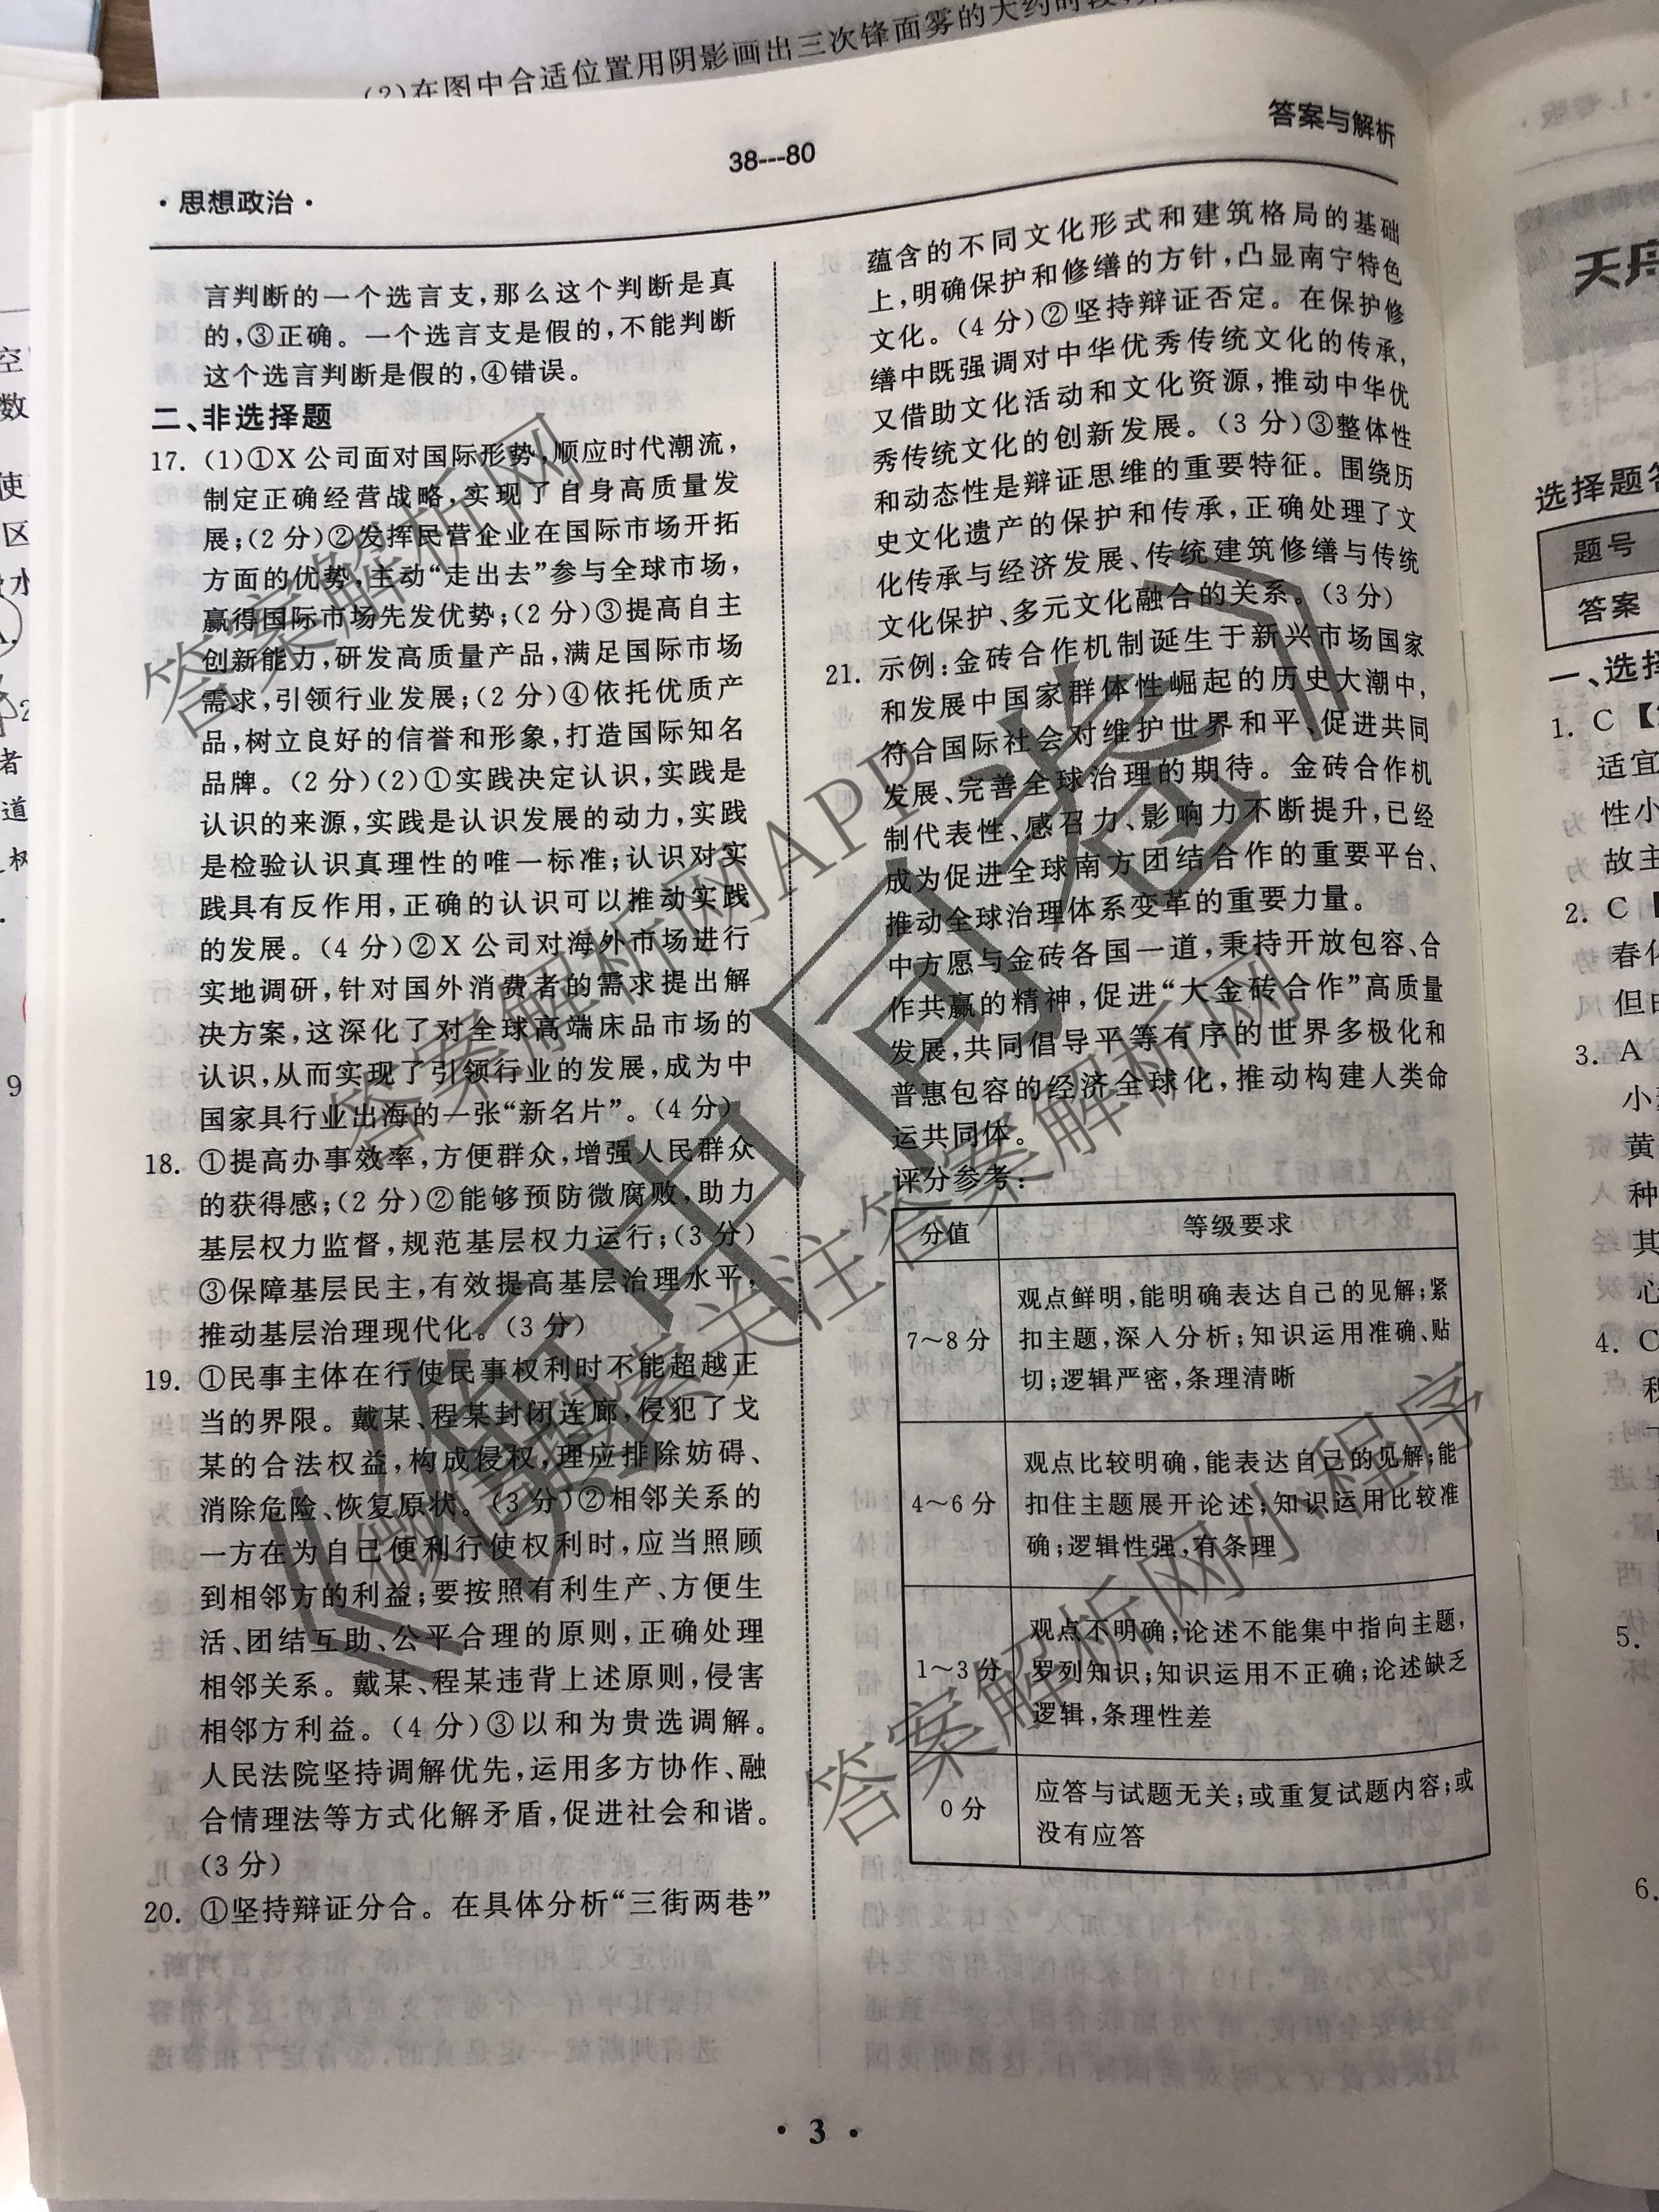 (2)在图中合适位置用阴影画出三次锋面雾的大约时段
答案与解析
38---80
·思想政治·
言判断的一个选言支,那么这个判断是真
的,③正确。一个选言支是假的,不能判断
这个选言判断是假的,④错误。
二、非选择题
17. (1)①X公司面对国际形势,顺应时代潮流,
制定正确经营战略,实现了自身高质量发
展;(2分)②发挥民营企业在国际市场开拓
方面的优势,主动“走出去”参与全球市场,
赢得国际市场先发优势;(2分)③提高自主
创新能力,研发高质量产品,满足国际市场
需求,引领行业发展;(2分)④依托优质产
品,树立良好的信誉和形象,打造国际知名
品牌。(2分)(2)①实践决定认识,实践是
认识的来源,实践是认识发展的动力,实践
是检验认识真理性的唯一标准;认识对实
践具有反作用,正确的认识可以推动实践
的发展。(4分)②X公司对海外市场进行
实地调研,针对国外消费者的需求提出解
决方案,这深化了对全球高端床品市场的
认识,从而实现了引领行业的发展,成为中
国家具行业出海的一张“新名片”。(4分)
18. ①提高办事效率,方便群众,增强人民群众
的获得感;(2分)②能够预防微腐败,助力
基层权力监督,规范基层权力运行;(3分)
③保障基层民主,有效提高基层治理水平,
推动基层治理现代化。(3分)
19. ①民事主体在行使民事权利时不能超越正
当的界限。戴某、程某封闭连廊,侵犯了戈
某的合法权益,构成侵权,理应排除妨碍、
消除危险、恢复原状。(3分)②相邻关系的
一方在为自己便利行使权利时,应当照顾
到相邻方的利益;要按照有利生产、方便生
活、团结互助、公平合理的原则,正确处理
相邻关系。戴某、程某违背上述原则,侵害
相邻方利益。(4分)③以和为贵选调解。
人民法院坚持调解优先,运用多方协作、融
合情理法等方式化解矛盾,促进社会和谐。
(3分)
20. ①坚持辩证分合。在具体分析“三街两巷”
蕴含的不同文化形式和建筑格局的基础
上,明确保护和修缮的方针,凸显南宁特色
文化。(4分)②坚持辩证否定。在保护修
缮中既强调对中华优秀传统文化的传承,
又借助文化活动和文化资源,推动中华优
秀传统文化的创新发展。(3分)③整体性
和动态性是辩证思维的重要特征。围绕历
史文化遗产的保护和传承,正确处理了文
化传承与经济发展、传统建筑修缮与传统
文化保护、多元文化融合的关系。(3分)
21. 示例:金砖合作机制诞生于新兴市场国家
和发展中国家群体性崛起的历史大潮中,
符合国际社会对维护世界和平、促进共同
发展、完善全球治理的期待。金砖合作机
制代表性、感召力、影响力不断提升,已经
成为促进全球南方团结合作的重要平台、
推动全球治理体系变革的重要力量。
中方愿与金砖各国一道,秉持开放包容、合
作共赢的精神,促进“大金砖合作”高质量
发展,共同倡导平等有序的世界多极化和
普惠包容的经济全球化,推动构建人类命
运共同体。
评分参考:
分值 等级要求
7～8分 观点鲜明,能明确表达自己的见解;紧
扣主题,深入分析;知识运用准确、贴
切;逻辑严密,条理清晰
4～6分 观点比较明确,能表达自己的见解;能
扣住主题展开论述;知识运用比较准
确;逻辑性强,有条理
1～3分 观点不明确;论述不能集中指向主题,
罗列知识;知识运用不正确;论述缺乏
逻辑,条理性差
0分 应答与试题无关;或重复试题内容;或
没有应答
· 3 ·
答案解析网
答案解析网APP
微信搜索关注答案解析网
答案解析网小程序
选择题答
题号
答案
一、选择
1. C
适宜
性小
故主
2. C
春化
但由
3. A
小麦
黄
种
其
心
4. C
5.
6.